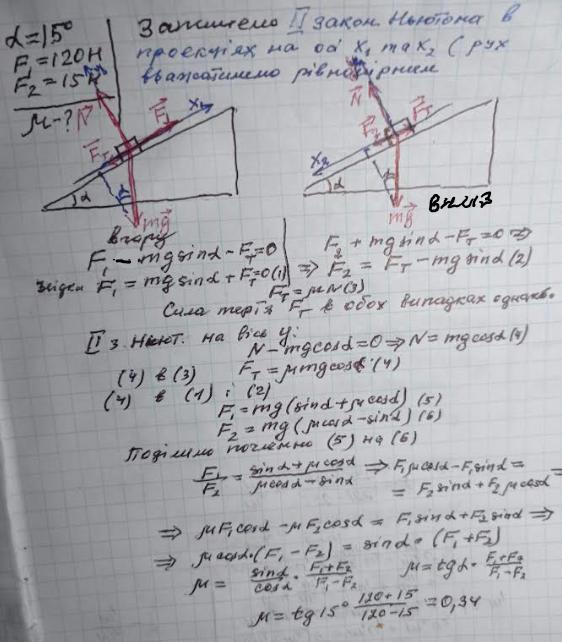 α=15°
F₁=120Н
F₂=15Н
μ-?
Запишемо ІІ закон Ньютона в
проекціях на осі х₁ та х₂ (рух
вважатимемо рівномірним
N⃗ F⃗₁ х₁ F⃗т α mg⃗
N⃗ F⃗т F⃗₂ х₂ α mg⃗
вгору
вниз
F₁ - mgsinα - Fт=0
звідки F₁ = mgsinα + Fт=0 (1)
F₂ + mgsinα - Fт=0 ⇒
⇒ F₂ = Fт - mgsinα (2)
Fт = μN (3)
Сила тертя Fт в обох випадках однаков.
ІІ з. Ньют. на вісь у:
N - mgcosα=0 ⇒ N = mgcosα (4)
(4) в (3) Fт = μmgcosα (4)
(4) в (1) і (2)
F₁ = mg(sinα + μcosα) (5)
F₂ = mg(μcosα - sinα) (6)
Поділимо почленно (5) на (6)
F₁/F₂ = (sinα + μcosα)/(μcosα - sinα) ⇒ F₁μcosα - F₁sinα =
= F₂sinα + F₂μcosα =
⇒ μF₁cosα - μF₂cosα = F₁sinα + F₂sinα ⇒
⇒ μcosα·(F₁ - F₂) = sinα·(F₁ + F₂)
μ = sinα/cosα · (F₁+F₂)/(F₁-F₂) μ = tgα · (F₁+F₂)/(F₁-F₂)
μ = tg15° (120+15)/(120-15) = 0,34